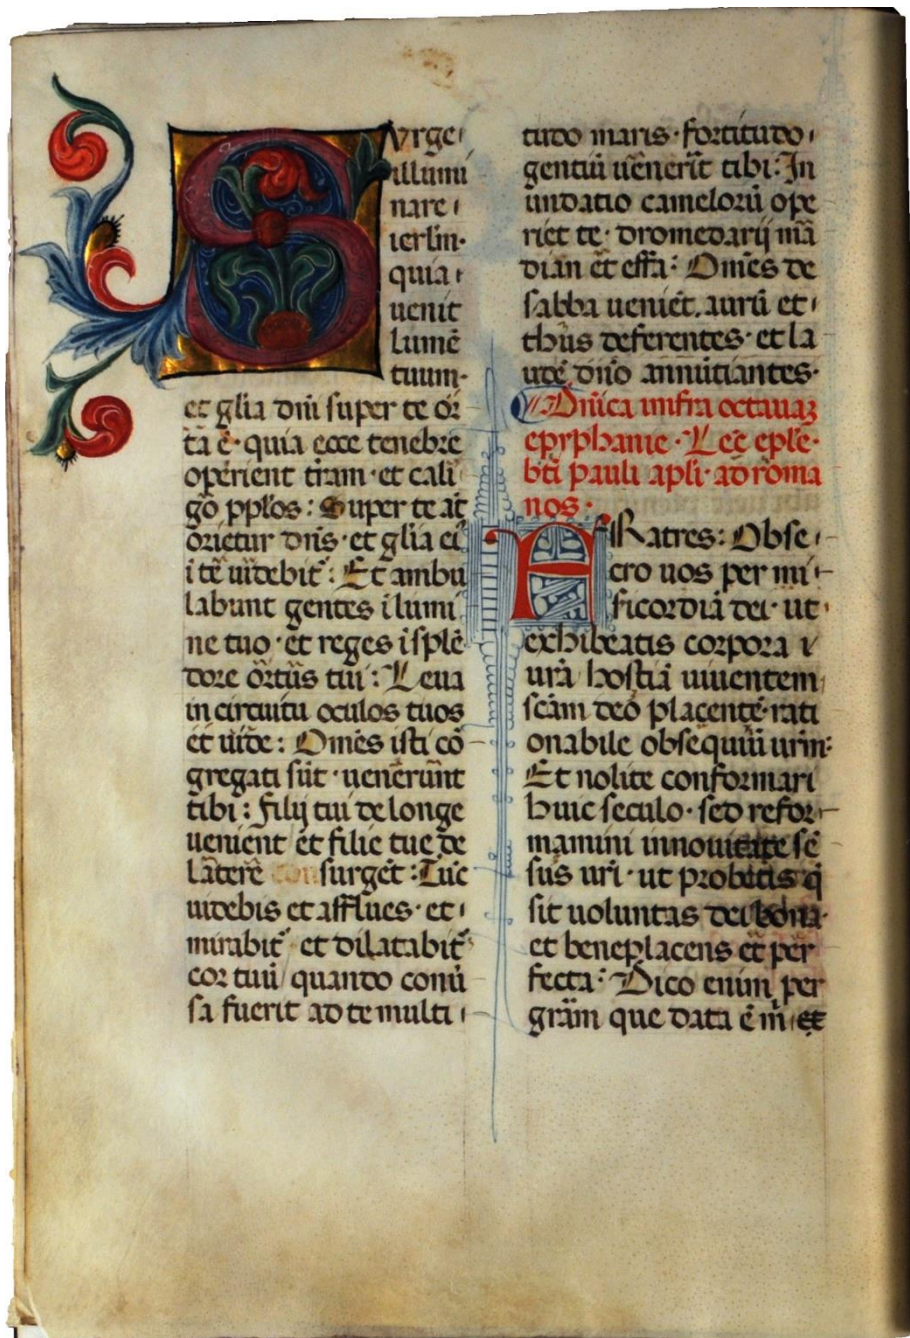 Surge
illumi
nare
ierl̅m·
quia
uenit
lumē
tuum·
et glīa dn̄i super te or
ta ē· quia ecce tenebre
operient tr̄am· et cali
go pplōs: Super te at̄
orietur dn̄s· et glīa ei
i te uidebit̄: Et ambu
labunt gentes i lumi
ne tuo· et reges i splē
dore ortus tui: Leua
in circuitu oculos tuos
et uide: Omēs isti cō
gregati sūt· uenerunt
tibi: filij tui de longe
uenient et filie tue de
latere surgēt: Tūc
uidebis et afflues· et
mirabit̄ et dilatabit̄
cor tuū quando conū
sa fuerit ad te multi
tudo maris· fortitudo
gentiū uēnerīt tibi: In
undatio camelorū ope
riet te· dromedarij mā
dian et effa: Omēs de
sabba uenīēt. aurū et
thus deferentes· et la
udē dn̄o annūtiantes·
Dn̄ica infra octauaȝ
epyphanie· Lec̄ epl̄e·
bt̄i pauli apl̄i· ad roma
nos·
FRatres: Obse
cro uos per mi
sicordiā dei· ut
exhibeatis corpora v
urā hostiā uiuentem
scām deo placentē· rati
onabile obsequiū urm̄:
Et nolite conformari
huic seculo· sed refor
mamini in nouitate sē
sus ur̄i· ut probetis q̄
sit uoluntas dei bona·
et beneplacens et per
fecta: Dico enim per
grām que data ē m̄· et